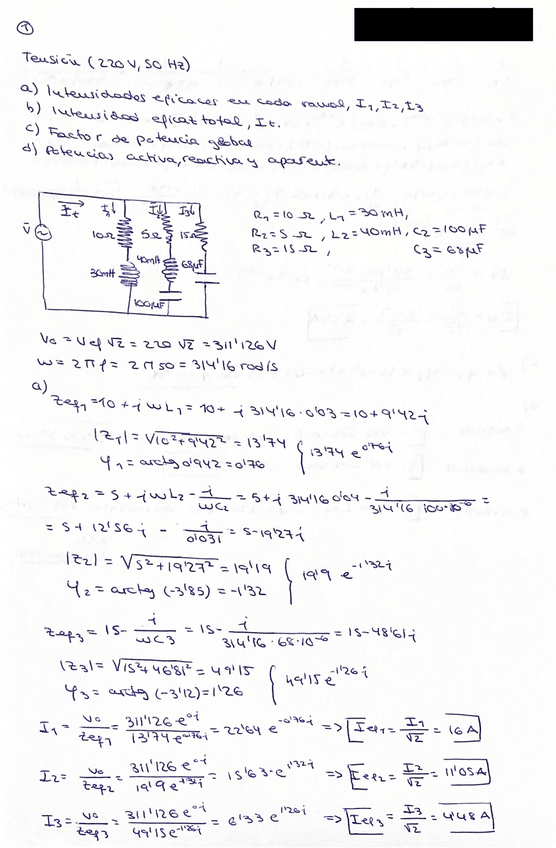 ①
Tensión (220 V, 50 Hz)
a) Intensidades eficaces en cada ramal, I1, I2, I3
b) Intensidad eficaz total, It.
c) Factor de potencia global
d) Potencias activa, reactiva y aparente.
It I1↓ I2↓ I3↓
V̄ ~ 10Ω 5Ω 15Ω
30mH 40mH 68µF
100µF
R1 = 10 Ω, L1 = 30 mH,
R2 = 5 Ω, L2 = 40mH, C2 = 100µF
R3 = 15 Ω, C3 = 68µF
V0 = Vef √2 = 220 √2 = 311'126 V
ω = 2πf = 2π50 = 314'16 rad/s
a)
Zef1 = 10 + j ωL1 = 10 + j 314'16 · 0'03 = 10 + 9'42 j
|Z1| = √(10² + 9'42²) = 13'74
φ1 = arctg 0'942 = 0'76 } 13'74 e^(0'76j)
Zef2 = 5 + j ωL2 - j/(ωC2) = 5 + j 314'16 0'04 - j/(314'16 · 100·10^-6) =
= 5 + 12'56 j - j/0'031 = 5 - 19'27 j
|Z2| = √(5² + 19'27²) = 19'19
φ2 = arctg (-3'85) = -1'32 } 19'9 e^(-1'32j)
Zef3 = 15 - j/(ωC3) = 15 - j/(314'16 · 68·10^-6) = 15 - 48'61 j
|Z3| = √(15² + 46'81²) = 49'15
φ3 = arctg (-3'12) = 1'26 } 49'15 e^(-1'26j)
I1 = V0/Zef1 = 311'126 e^(0j)/13'74 e^(0'76j) = 22'64 e^(-0'76j) => Ief1 = I1/√2 = 16 A
I2 = V0/Zef2 = 311'126 e^(0j)/19'9 e^(-1'32j) = 15'63 · e^(1'32j) => Ief2 = I2/√2 = 11'05 A
I3 = V0/Zef3 = 311'126 e^(0j)/49'15 e^(-1'26j) = 6'33 e^(1'26j) => Ief3 = I3/√2 = 4'48 A